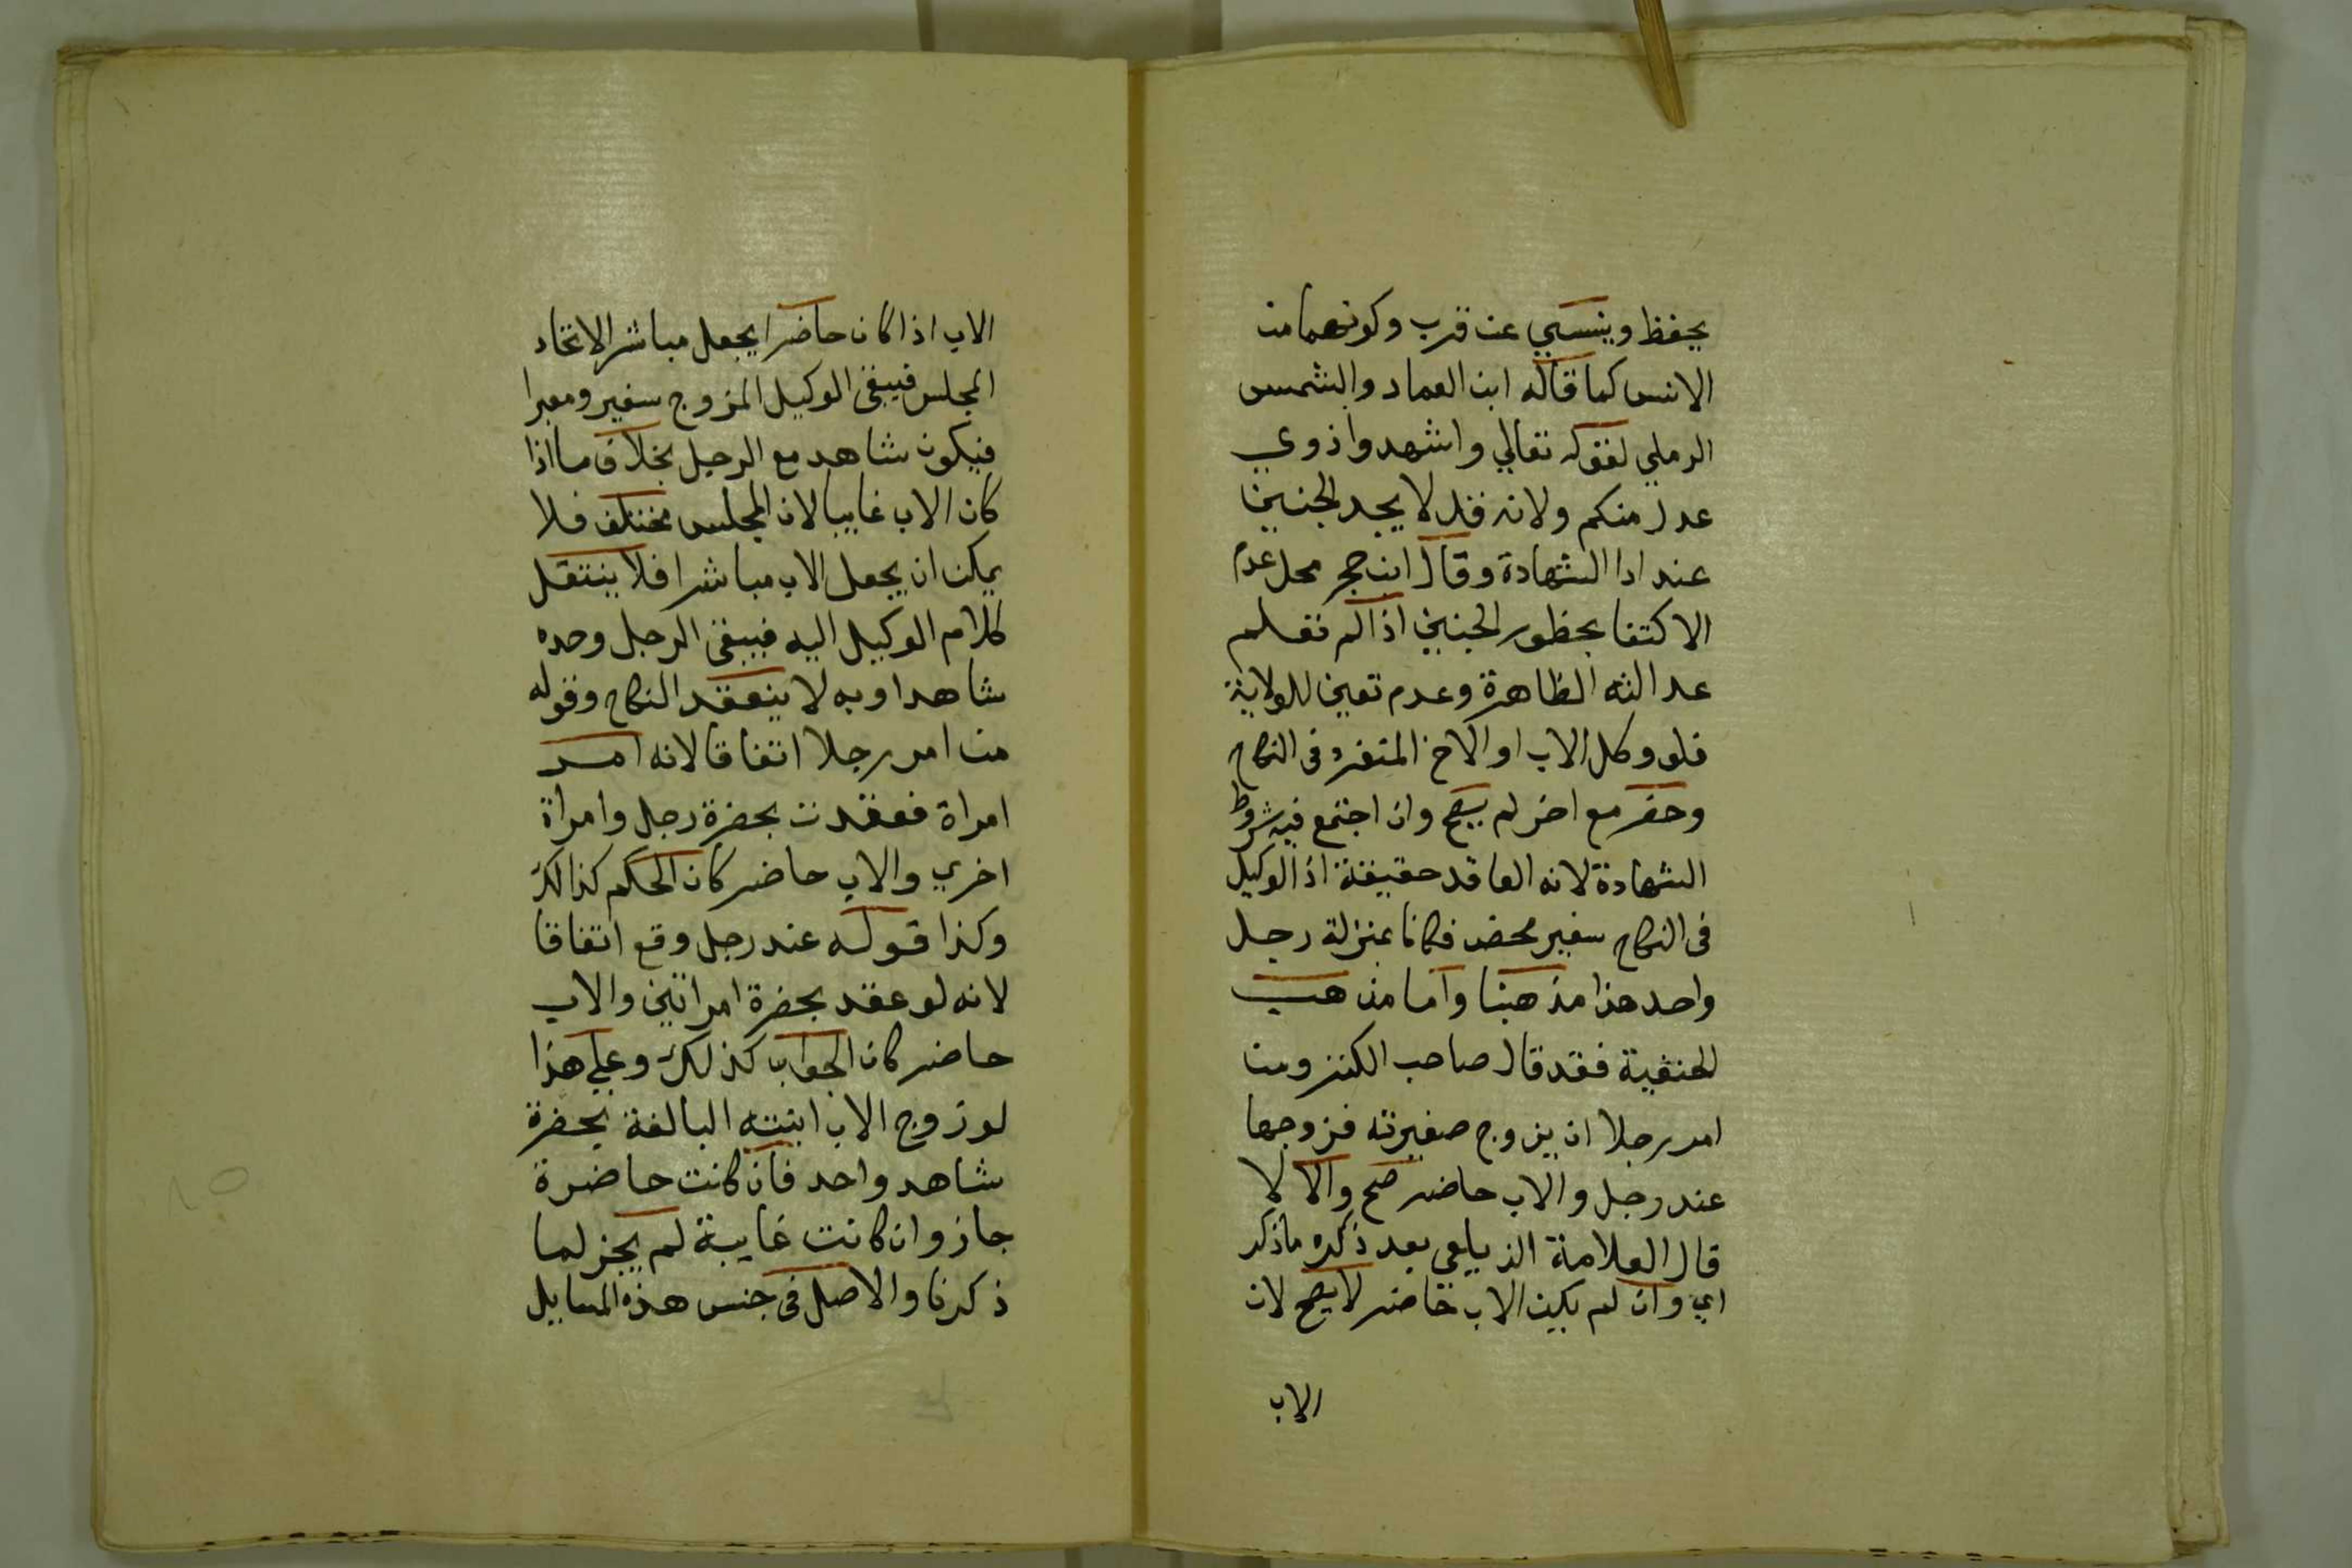 يحفظ وينسي عن قرب وكونهما من
الانس كما قاله ابن العماد والشمس
الرملي لقوله تعالي واشهدوا ذوي
عدل منكم ولانه قد لا يجد الجنيين
عند ادا الشهادة وقال ابن حجر محل عدم
الاكتفا بحظور الجنيين اذا لم تعلم
عدالته الظاهرة وعدم تعين للولاية
فلو وكل الاب او الاخ المتفرد فى النكاح
وحضر مع اخر لم يصح وان اجتمع فيه شروط
الشهادة لانه العاقد حقيقة اذ الوكيل
فى النكاح سفير محض فكانا بمنزلة رجل
واحد هذا مذهبنا واما مذهب
الحنفية فقد قال صاحب الكنز ومن
امر رجلا ان يزوج صغيرته فزوجها
عند رجل والاب حاضر صح والا لا
قال العلامة الزيلعي بعد ذكره ما ذكر
اي وان لم يكن الاب حاضر لا يصح لان
الاب
الاب اذا كان حاضرا يجعل مباشر الاتحاد
المجلس فيبقى الوكيل المزوج سفير ومعبرا
فيكون شاهد مع الرجل بخلاف ما اذا
كان الاب غايبا لان المجلس مختلف فلا
يمكن ان يجعل الاب مباشرا فلا ينتقل
كلام الوكيل اليه فيبقى الرجل وحده
شاهدا وبه لا ينعقد النكاح وقوله
من امر رجلا اتفاقا لانه امر
امراة فعقدت بحضرة رجل وامراة
اخري والاب حاضر كان الحكم كذالك
وكذا قوله عند رجل وقع اتفاقا
لانه لو عقد بحضرة امراتين والاب
حاضر كان الجواب كذلك وعلي هذا
لو زوج الاب ابنته البالغة بحضرة
شاهد واحد فان كانت حاضرة
جاز وان كانت غايبة لم يجز لما
ذكرنا والاصل فى جنس هذه المسايل